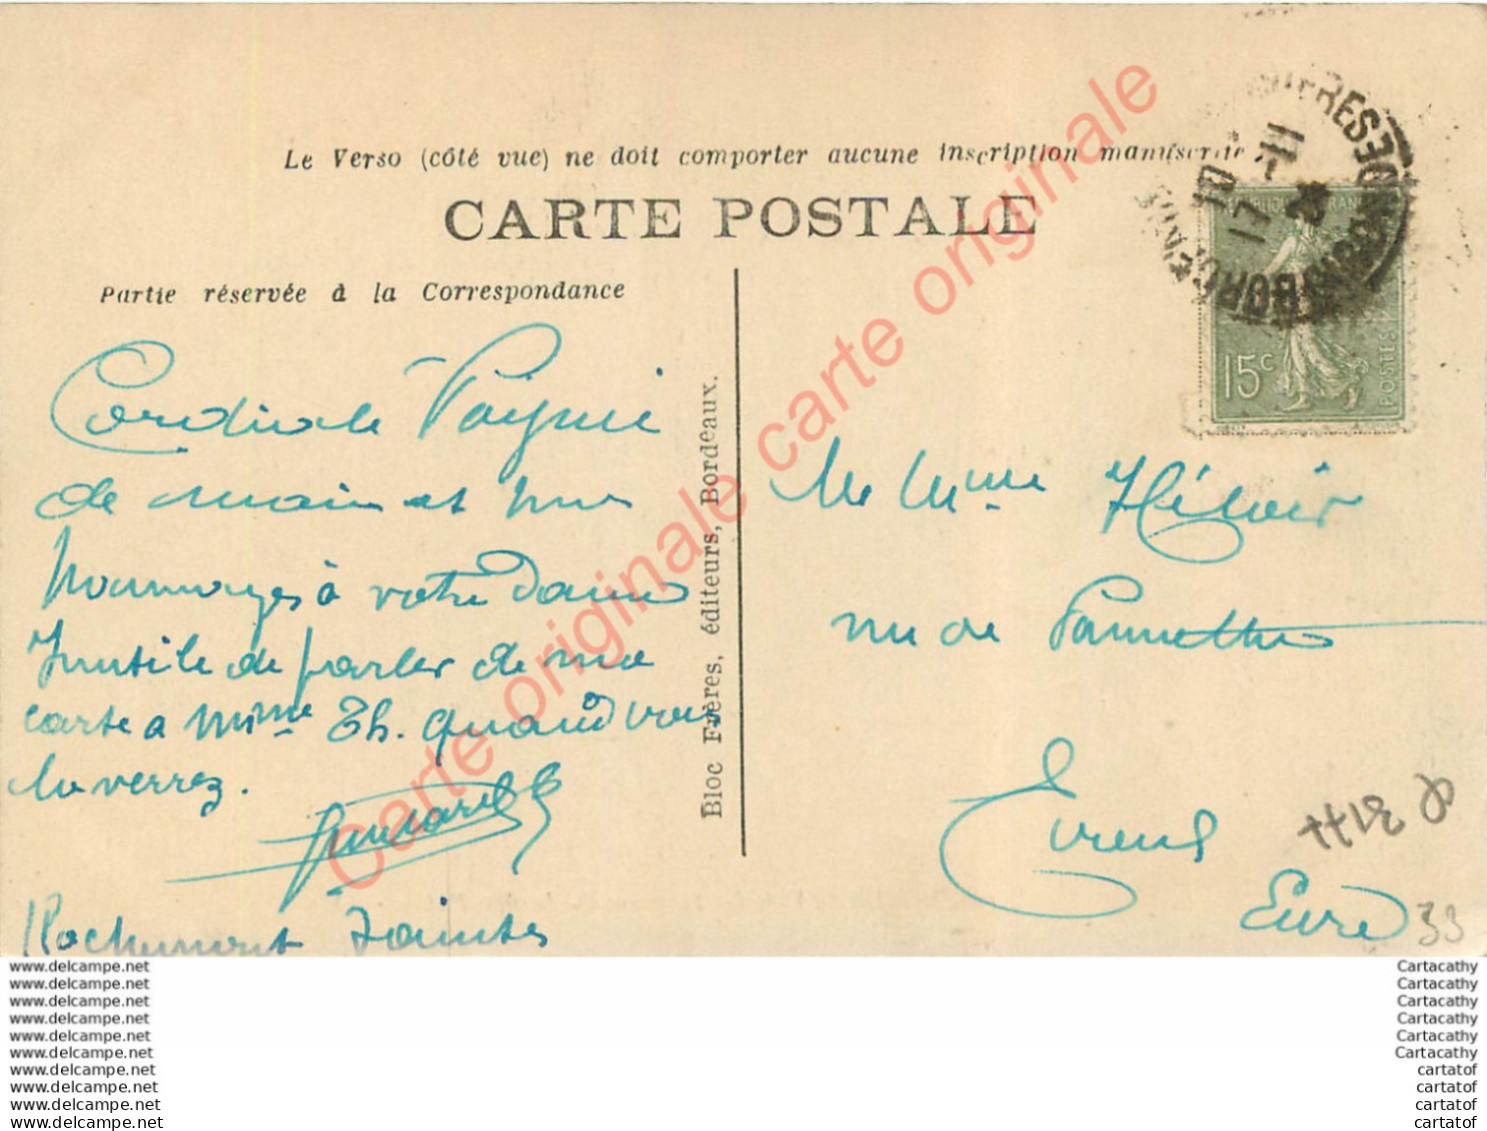 Le Verso (côté vue) ne doit comporter aucune inscription manuscrite
CARTE POSTALE
Partie réservée à la Correspondance
Cordiale Poignée
de main et mes
hommages à votre Dame
Inutile de parler de ma
carte a Mme Th. quand vous
la verrez.
Rochemont Saintes
Bloc Frères, éditeurs, Bordeaux.
17 - 11
15c
POSTES
M et Mme
rue de
Evreux
Eure
33
Carte originale carte originale carte originale
www.delcampe.net
www.delcampe.net
www.delcampe.net
www.delcampe.net
www.delcampe.net
www.delcampe.net
www.delcampe.net
www.delcampe.net
www.delcampe.net
www.delcampe.net
Cartacathy
Cartacathy
Cartacathy
Cartacathy
Cartacathy
Cartacathy
cartatof
cartatof
cartatof
cartatof